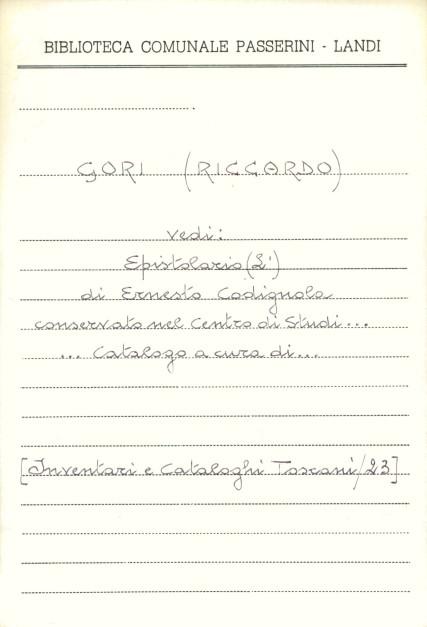 BIBLIOTECA COMUNALE PASSERINI - LANDI
GORI (RICCARDO)
vedi:
Epistolario (L')
di Ernesto Codignola
conservato nel Centro di Studi...
... Catalogo a cura di...
[Inventari e Cataloghi Toscani/23]